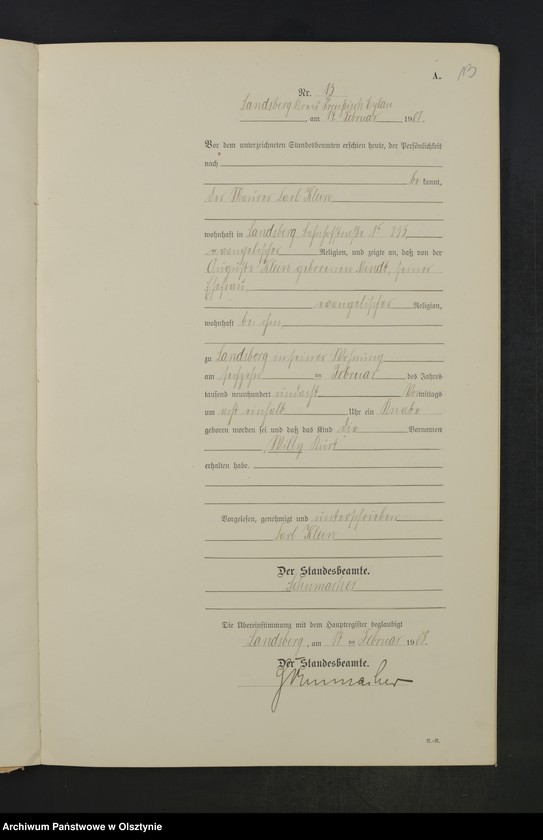 A.
13
Nr. 13
Landsberg Kreis Preußisch Eylau
, am 17. Februar 1908.
Vor dem unterzeichneten Standesbeamten erschien heute, der Persönlichkeit
nach
bekannt,
der Maurer Carl Klein
wohnhaft in Landsberg Bahnhofstraße No
evangelischer Religion, und zeigte an, daß von der
Auguste Klein geborenen seiner
Ehefrau
evangelischer Religion,
wohnhaft bei ihm
zu Landsberg in seiner Wohnung
am ten Februar des Jahres
tausend neunhundert und acht Vormittags
um acht einhalb Uhr ein Knabe
geboren worden sei und daß das Kind die Vornamen
Willy Kurt
erhalten habe.
Vorgelesen, genehmigt und unterschrieben
Carl Klein
Der Standesbeamte.
Schumacher
Die Übereinstimmung mit dem Hauptregister beglaubigt
Landsberg, am 17 ten Februar 1908.
Der Standesbeamte.
Schumacher
Archiwum Państwowe w Olsztynie